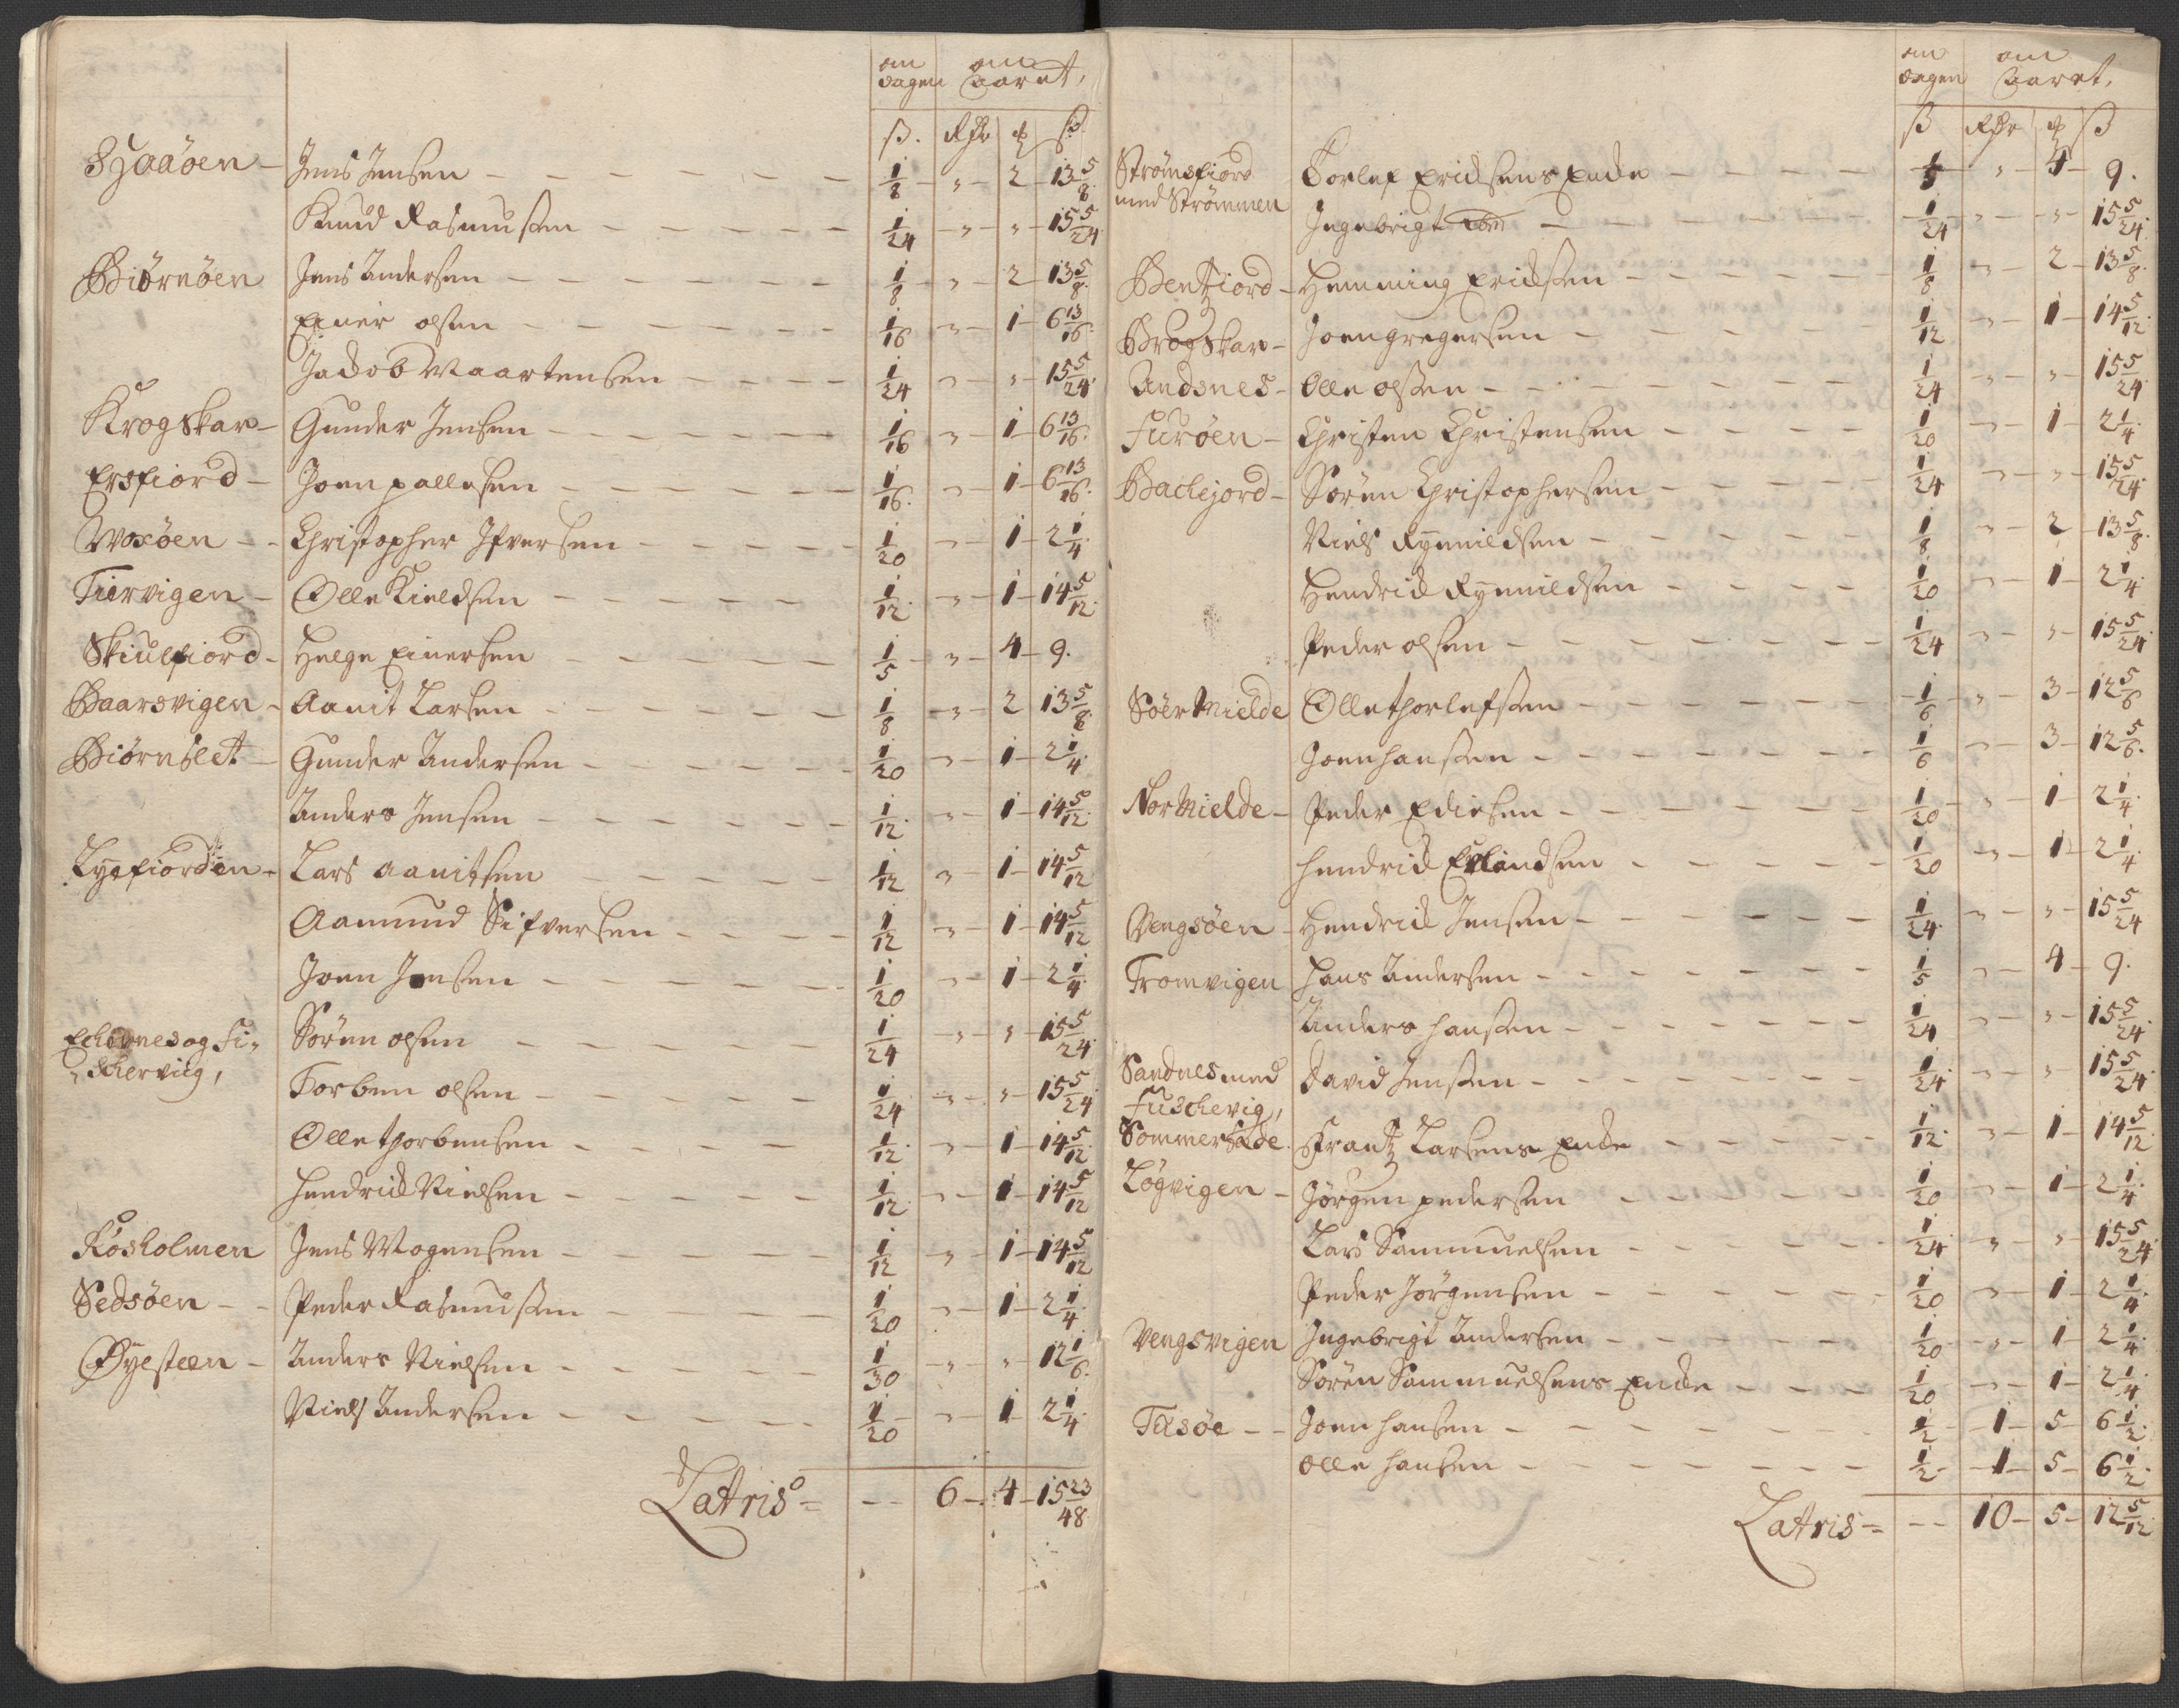 om om
dagen aaret,
ß. Rdr ȝ ß
Sjaaøen - Jens Jensen - 1/8 - „ - 2 - 13 5/8.
Knud Rasmussen - 1/24 - „ - „ - 15 5/24
Biørnøen Jens Andersen - 1/8 - „ - 2 - 13 5/8.
Einer olsen - 1/16 - „ - 1 - 6 13/16.
Jackob Maartensen - 1/24 - „ - „ - 15 5/24.
Krogskar - Gunder Jensen - 1/16 - „ - 1 - 6 13/16.
Ersfiord - Joen pallesen - 1/16. - „ - 1 - 6 13/16.
Woxøen - Christopher Ifversen - 1/20 - „ - 1 - 2 1/4.
Tiervigen - Olle Kieldsen - 1/12. - „ - 1 - 14 5/12.
Skiulfiord - Helge Einersen - 1/5 - „ - 4 - 9.
Baarsvigen - Aanit Larsen - 1/8 - „ - 2 13 5/8.
Biørnslet - Gunder Andersen - 1/20 - „ - 1 - 2 1/4.
Anders Jensen - 1/12. - „ - 1 - 14 5/12.
Lyefiorden - Lars Aanitsen - 1/12 - „ - 1 - 14 5/12
Aamund Sifversen - 1/12 - „ - 1 - 14 5/12
Joen Jensen - 1/20 - „ - 1 - 2 1/4.
Echernes og Fi- Søren olsen - 1/24 - „ - „ - 15 5/24.
schervüg,
Torben olsen - 1/24 - „ - „ - 15 5/24
Olle thorbensen - 1/12. - „ - 1 - 14 5/12
Hendrick Nielsen - 1/12. - „ - 1 - 14 5/12
Røsholmen Jens Mogensen - 1/12 - „ - 1 - 14 5/12
Sedsøen - Peder Rasmussen - 1/20 - „ - 1 - 2 1/4.
Øyesteen - Anders Nielsen - 1/30 - „ - „ - 12 1/6.
Niels Andersen - 1/20 - „ - 1 - 2 1/4.
Latris = - 6 - 4 - 15 23/48.
om om
dagen aaret,
ß Rdr ȝ ß
Strømsfiord Torlef Ericksens Encke - 1/5 - „ - 4 - 9.
med Strømmen
Ingebrigt - 1/24 - „ - „ - 15 5/24.
Bentziord - Hemming Ericksen - 1/8 - „ - 2 - 13 5/8.
Brogskar - Joen gregersen - 1/12 - „ - 1 - 14 5/12.
Andsnes - Olle olsen - 1/24 - „ - „ - 15 5/24
Furøen - Christen Christensen - 1/20 - „ - 1 - 2 1/4.
Bachejord - Søren Christophersen - 1/24 - „ - „ - 15 5/24.
Niels Rynnildsen - 1/8 - „ - 2 - 13 5/8.
Hendrick Rynnildsen - 1/20 - „ - 1 - 2 1/4.
Peder olsen - 1/24 - „ - „ - 15 5/24.
Søer Mielde Olle thorlefsen - 1/6 - „ - 3 - 12 5/6
Joen hansen - 1/6 - „ - 3 - 12 5/6.
Nor Mielde - Peder Edisen - 1/20 - „ - 1 - 2 1/4.
hendrick Erlandsen - 1/20 - „ - 1 - 2 1/4.
Vengsøen - Hendrick Jensen - 1/24. - „ - „ - 15 5/24
Tromvigen Hans Andersen - 1/5 - „ - 4 - 9.
Anders hansen - 1/24 - „ - „ - 15 5/24.
Sandnes med David Jensen - 1/24. - „ - „ - 15 5/24.
Fuschevig,
Sommersæde. Frantz Larsens Encke - 1/12. - „ - 1 - 14 5/12.
Løgvigen - Jørgen pedersen - 1/20 - „ - 1 - 2 1/4.
Lars Sammuelsen - 1/24. - „ - „ - 15 5/24.
Peder Jørgensen - 1/20 - „ - 1 - 2 1/4.
Vengsvigen Ingebrigt Andersen - 1/20 - „ - 1 2 1/4.
Søren Sammuelsens Encke - 1/20 - „ - 1 - 2 1/4.
Tusøe - Joen hansen - 1/2 - 1 - 5 - 6 1/2.
olle hansen - 1/2 - 1 - 5 - 6 1/2.
Latris = - 10 - 5 - 12 5/12.